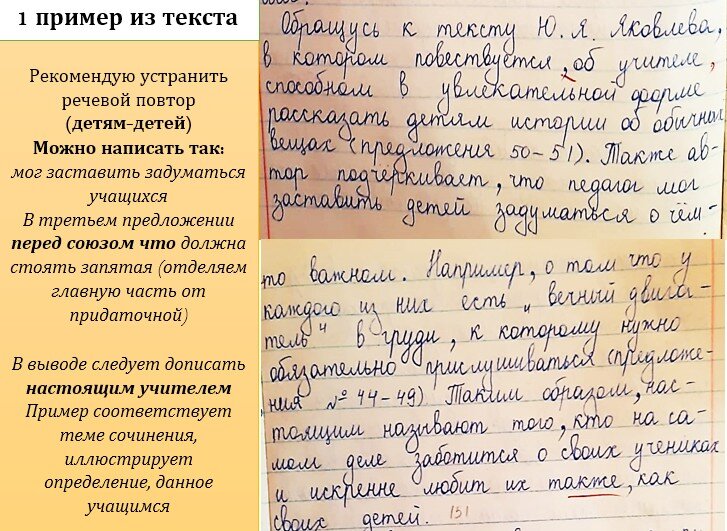 1 пример из текста
Рекомендую устранить
речевой повтор
(детям-детей)
Можно написать так:
мог заставить задуматься
учащихся
В третьем предложении
перед союзом что должна
стоять запятая (отделяем
главную часть от
придаточной)
В выводе следует дописать
настоящим учителем
Пример соответствует
теме сочинения,
иллюстрирует
определение, данное
учащимся
Обращусь к тексту Ю. Я. Яковлева,
в котором повествуется, об учителе,
способном в увлекательной форме
рассказать детям истории об обычных
вещах (предложения 50-51). Также ав-
тор подчёркивает, что педагог мог
заставить детей задуматься о чём-
то важном. Например, о том что у
каждого из них есть „вечный двига-
тель" в груди, к которому нужно
обязательно прислушиваться (предложе-
ния № 44-49) Таким образом, нас-
тоящим называют того, кто на са-
мом деле заботится о своих учениках
и искренне любит их также, как
своих детей. 131